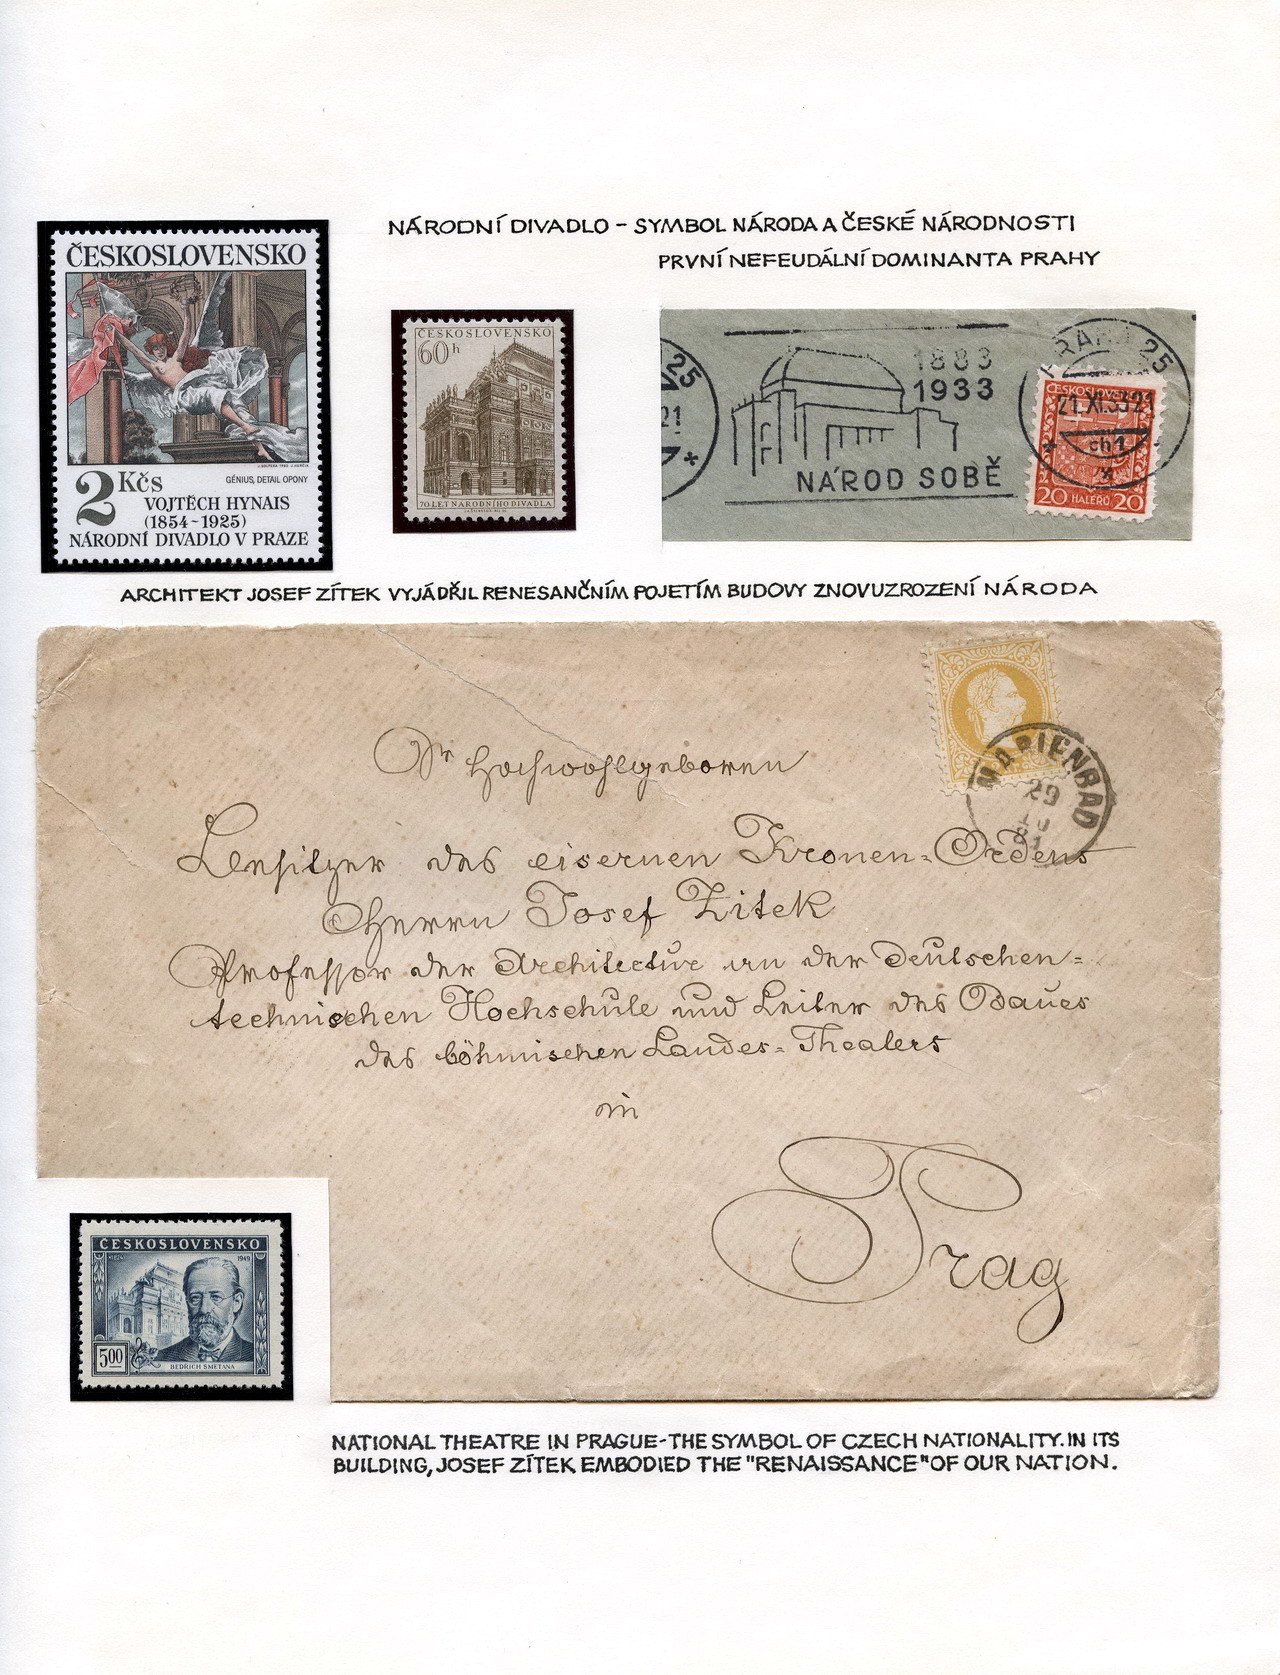 NÁRODNÍ DIVADLO – SYMBOL NÁRODA A ČESKÉ NÁRODNOSTI
PRVNÍ NEFEUDÁLNÍ DOMINANTA PRAHY
ČESKOSLOVENSKO
2 Kčs
GÉNIUS, DETAIL OPONY
VOJTĚCH HYNAIS
(1854-1925)
NÁRODNÍ DIVADLO V PRAZE
ČESKOSLOVENSKO
60h
70 LET NÁRODNÍHO DIVADLA
25
21
*
1883
1933
NÁROD SOBĚ
PRAHA 25
21.XI.33 21
ch1
ČESKOSLOVENSKO
20 HALÉŘŮ 20
ARCHITEKT JOSEF ZÍTEK VYJÁDŘIL RENESANČNÍM POJETÍM BUDOVY ZNOVUZROZENÍ NÁRODA
MARIENBAD
29
Sr Hochwohlgeboren
Besitzer des eisernen Kronen-Ordens
Herrn Josef Zitek
Professor der Architectur an der Deutschen-
technischen Hochschule und Leiter des Baues
des böhmischen Landes-Theaters
in
Prag
ČESKOSLOVENSKO
1824 1949
5.00
BEDŘICH SMETANA
NATIONAL THEATRE IN PRAGUE-THE SYMBOL OF CZECH NATIONALITY. IN ITS
BUILDING, JOSEF ZÍTEK EMBODIED THE "RENAISSANCE" OF OUR NATION.